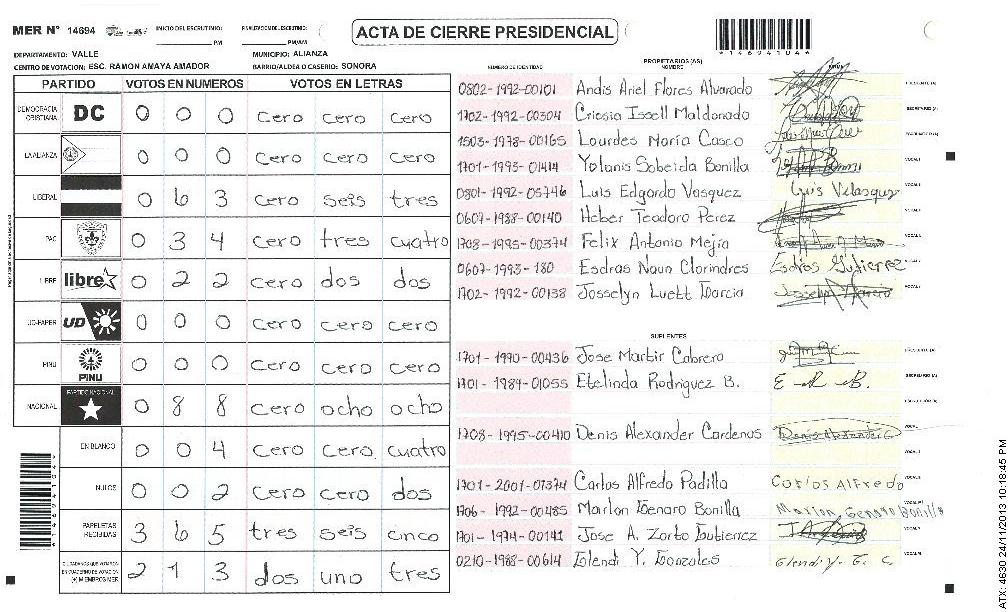 MER Nº 14694 INICIO DEL ESCRUTINIO: PM FINALIZACION DEL ESCRUTINIO: PM/AM
ACTA DE CIERRE PRESIDENCIAL
*14694104*
DEPARTAMENTO: VALLE MUNICIPIO: ALIANZA
CENTRO DE VOTACION: ESC. RAMON AMAYA AMADOR BARRIO/ALDEA O CASERIO: SONORA
PARTIDO VOTOS EN NUMEROS VOTOS EN LETRAS
DEMOCRACIA CRISTIANA DC 0 0 0 cero cero cero
LA ALIANZA 0 0 0 cero cero cero
LIBERAL 0 6 3 cero seis tres
PAC 0 3 4 cero tres cuatro
LIBRE libre 0 2 2 cero dos dos
UD-FAPER UD 0 0 0 cero cero cero
PINU PINU 0 0 0 cero cero cero
NACIONAL PARTIDO NACIONAL 0 8 8 cero ocho ocho
EN BLANCO 0 0 4 cero cero cuatro
NULOS 0 0 2 cero cero dos
PAPELETAS RECIBIDAS 3 6 5 tres seis cinco
CIUDADANOS QUE VOTARON EN CUADERNO DE VOTACION (+) MIEMBROS MER 2 1 3 dos uno tres
PROPIETARIOS (AS)
NUMERO DE IDENTIDAD NOMBRE FIRMA
0802-1992-00101 Andis Ariel Flores Alvarado PRESIDENTE (A)
1702-1992-00304 Criesia Issell Maldonado SECRETARIO (A)
1503-1978-00165 Lourdes María Casco ESCRUTADOR (A)
1701-1993-01414 Yolanis Sobeida Bonilla VOCAL I
0801-1992-05746 Luis Edgardo Vasquez Luis Velasquez
0607-1988-00140 Heber Teodoro Perez
1708-1995-00374 Felix Antonio Mejía
0607-1993-180 Esdras Naun Clorindres Esdras Gutierrez
1702-1992-00138 Josselyn Luett Garcia
SUPLENTES
1701-1990-00436 Jose Marbir Cabrera PRESIDENTE (A)
1701-1984-01055 Etelinda Rodriguez B. E R B. SECRETARIO (A)
1708-1995-00410 Denis Alexander Cardenas Denis Alexander C
1701-2001-01374 Carlos Alfredo Padilla Carlos Alfredo
1706-1992-00485 Marlon Genaro Bonilla Marlon Genaro Bonilla
1701-1974-00141 Jose A. Zorto Gutierrez
0210-1988-00614 Glendi Y. Gonzales Glendi Y. G. C.
ATX: 4630 24/11/2013 10:18:45 PM